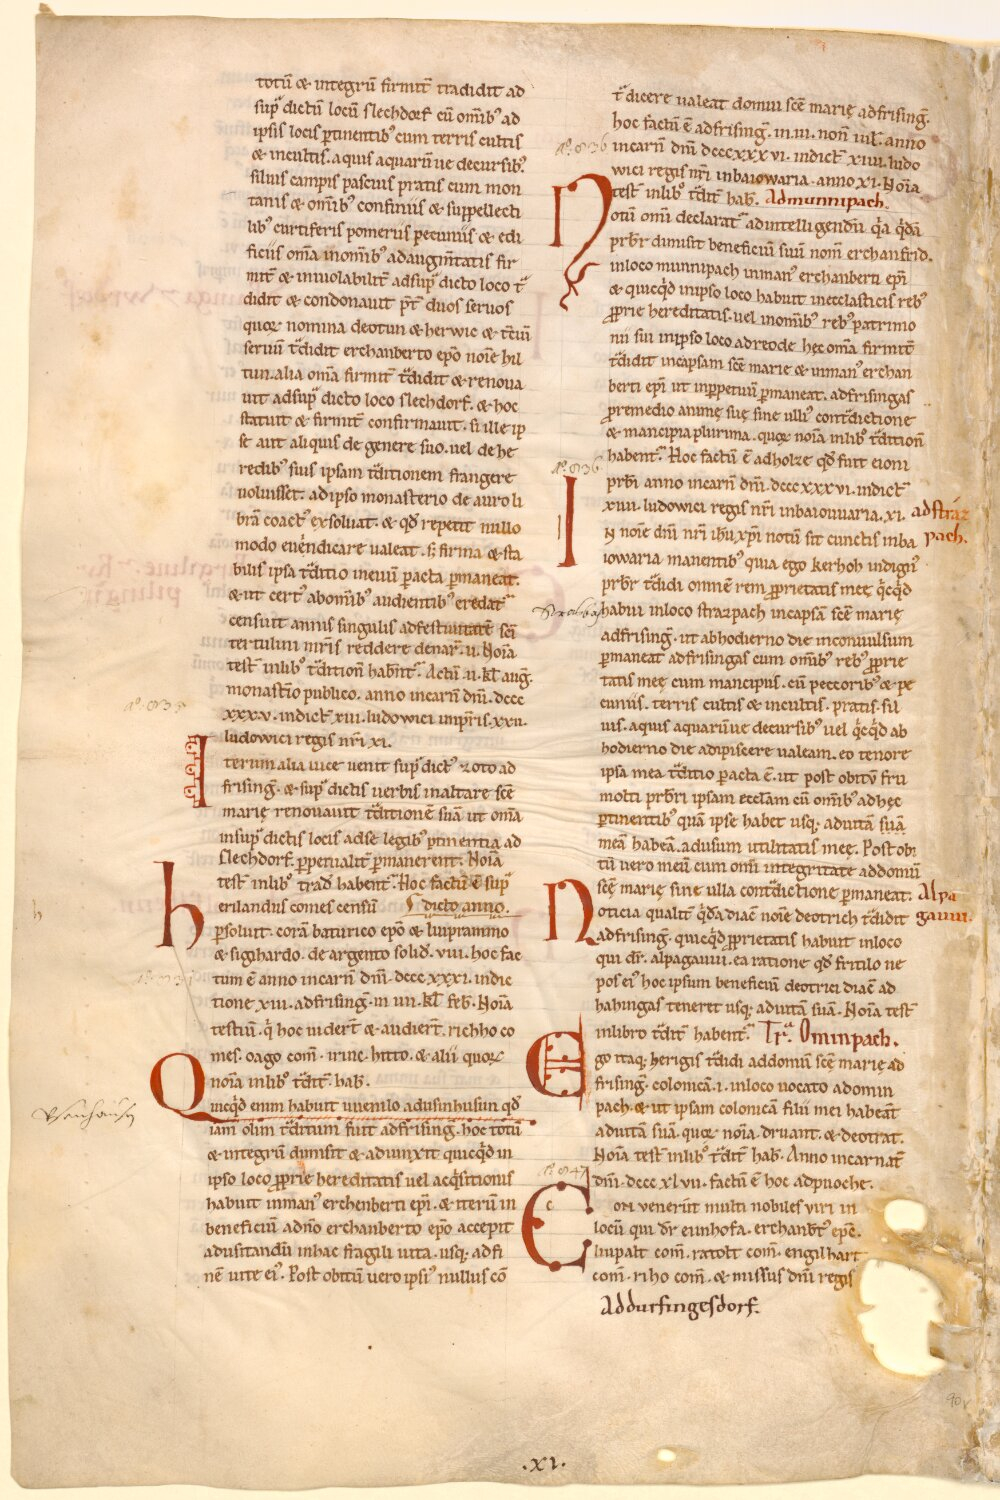 totū & integrū firmit̄ tradidit ad
sup̄ dictū locū slechdorf cū om̄ibꝰ ad
ipsis locis ꝑtinentibꝰ cum terris cultis
& incultis. aquis aquarū ue decursibꝰ.
siluis campis pascuis pratis cum mon
tanis & om̄ibꝰ confiniis & suppellecti
libꝰ curtiferis pomeriis pecuniis & edi
ficiis om̄a inom̄ibꝰ adaugm̄tatis fir
mit̄ & inuiolabilit̄ adsup̄ dicto loco t̄
didit & condonauit p̄t̄ duos seruos
quoꝝ nomina deotun & herwic & t̄ciū
seruū t̄didit erchanberto ep̄o noīe hil
tun. alia om̄a firmit̄ t̄didit & renoua
uit adsup̄ dicto loco slechdorf. & hoc
statuit & firmit̄ confirmauit. si ille ip
se aut aliquis de genere suo. uel de he
redibꝰ suis ipsam t̄ditionem frangere
uoluisset. ad ipso monasterio de auro li
brā coactꝰ exsoluat. & qd̄ repetit nullo
modo euēndicare ualeat. s; firma & sta
bilis ipsa t̄ditio in euū ꝑacta ꝑmaneat.
& ut certꝰ abom̄ibꝰ audientibꝰ credat̄
censuit annis singulis adfestiuitatē sc̄i
tertulini mr̄is reddere denar̄. ii. Noīa
test̄ inlibꝰ t̄ditionū habn̄t̄. Actū. ii. kl̄ auḡ.
monast̄io publico. anno incarn̄ dn̄i. dccc
xxx.v. indict̄ xiii. ludowici imp̄ris. xxii.
ludowici regis nr̄i xi.
Iterum alia uice uenit sup̄ dictꝰ zoto ad
frising̅. & sup̄ dictis uerbis inaltare sc̄e
marię renouauit t̄ditionē suā ut om̄a
insup̄ dictis locis acl̄se legibꝰ ꝑtinentia ad
slechdorf. ꝑpetualit̄ ꝑmanerent. Noīa
test̄ inlibꝰ trad̄ habent̄. Hoc factū ē sup̄
dicto anno.
herilandus comes censū
ꝑsoluit. corā baturico ep̄o & liuprammo
& sigihardo. de argento solid̄. viii. hoc fac
tum ē anno incarn̄ dn̄i. dccc xxxi. indic
tione xiii. adfrising̅. in iiii. kl̄ feb̄. Noīa
testiū. q̄ hoc uider̄t & audier̄t. richho co
mes. oago com̄. irinc. hitto. & alii quoꝝ
noīa inlibꝰ t̄dit̄. hab̄.
Quicq̄d enim habuit uuenilo adusinhusun qd̄
iam olim t̄ditum fuit adfrising̅. hoc totū
& integrū dimisit & adiunxit quicq̄d in
ipso loco ꝓprie hereditatis uel acq̄sitionis
habuit inmanꝰ erchenberti ep̄i. & iterū in
beneficiū adn̄o erchanberto ep̄o accepit
adusitandū inhac fragili uita. usq; ad fi
nē uite eiꝰ. Post obitū uero ipsiꝰ nullus cō
t̄dicere ualeat domui sc̄e marię adfrising̅.
hoc factū ē adfrising̅. in.iii. non̄ iul̄. anno
incarn̄ dn̄i dccc xxx vi. indict̄ xiiii. ludo
wici regis nr̄i inbaiowaria. anno xi. Noīa
test̄ inlibꝰ t̄dit̄ hab̄. Admunnipach.
Notū om̄i declarat̄ adintelligendū. q̄a q̄dā
pr̄br̄ dimisit beneficiū suū nom̄ erchanfrid.
inloco munnipach inmanꝰ erchanberti ep̄i
& quicq̄d inipso loco habuit inecclasticis rebꝰ
ꝓprie hereditatis. uel inom̄ibꝰ rebꝰ patrimo
nii sui inipso loco adreode hęc om̄a firmit̄
t̄didit incapsam sc̄e marie & inmanꝰ erchan
berti ep̄i ut inꝑpetuū ꝑmaneat. adfrisingas
ꝓremedio animę suę sine ulliꝰ cont̄dictione
& mancipia plurima. quoꝝ noīa inlibꝰ t̄ditionū
habent̄. Hoc factū ē adholze qd̄ fuit eioni
pr̄bri anno incarn̄ dn̄i. dccc xxx vi. indict̄
xiiii. ludowici regis nr̄i inbaiouuaria. xi. adstraz
pach.
In noīe dn̄i nr̄i ih̄u xp̄i notū sit cunctis inba
iowaria manentibꝰ quia ego kerhoh indignꝰ
pr̄br̄ t̄didi omnē rem ꝓprietatis meę q̄cq̄d
habui inloco strazpach incapsā sc̄ę marię
adfrising̅. ut abhodierno die inconuulsum
ꝑmaneat adfrisingas cum om̄ibꝰ rebꝰ ꝓprie
tatis meę cum mancipiis. cū peccoribꝰ & pe
cuniis. terris cultis & incultis. pratis. sil
uis. aquis aquarū ue decursibꝰ uel q̄cq̄d ab
hodierno die adipiscere ualeam. eo tenore
ipsa mea t̄ditio ꝑacta ē. ut post obitū fru
molti pr̄bri ipsam ecclām cū om̄ibꝰ adhęc
ꝑtinentibꝰ quā ipse habet usq; aduitā suā
meā habeā. adusum utilitatis meę. Post obi
tū vero meū cum om̄i integritate addomū
sc̄ę marię sine ulla cont̄dictione ꝑmaneat. Alpa
gauui.
Noticia qualit̄ q̄dā diac̄ noīe deotrich t̄didit
adfrising̅. quicq̄d ꝓprietatis habuit inloco
qui dr̄. alpagauui. ea ratione qd̄ fritilo ne
pos eiꝰ hoc ipsum beneficiū deotrici diac̄ ad
hahingas teneret usq; aduitā suā. Noīa test̄
inlibro t̄dit̄ habent̄. Tr̄a. Ominpach.
Ego itaq; herigis t̄didi addomū sc̄ę marię ad
frising̅. colonicā. i. inloco uocato adomin
pach. & ut ipsam colonicā filii mei habeāt
aduitā suā. quoꝝ noīa. druant. & deotrat.
Noīa test̄ inlibꝰ t̄dit̄ hab̄. Anno incarnat̄
dn̄i. dccc xl vii. factū ē hoc adpuoche.
Conuenerūt multi nobiles viri in
locū qui dr̄ eunhofa. erchanbt̄ ep̄c.
liupalt com̄. ratolt com̄. engilhart
com̄. riho com̄. & missus dn̄i regis
Addurfingesdorf.
.xi.